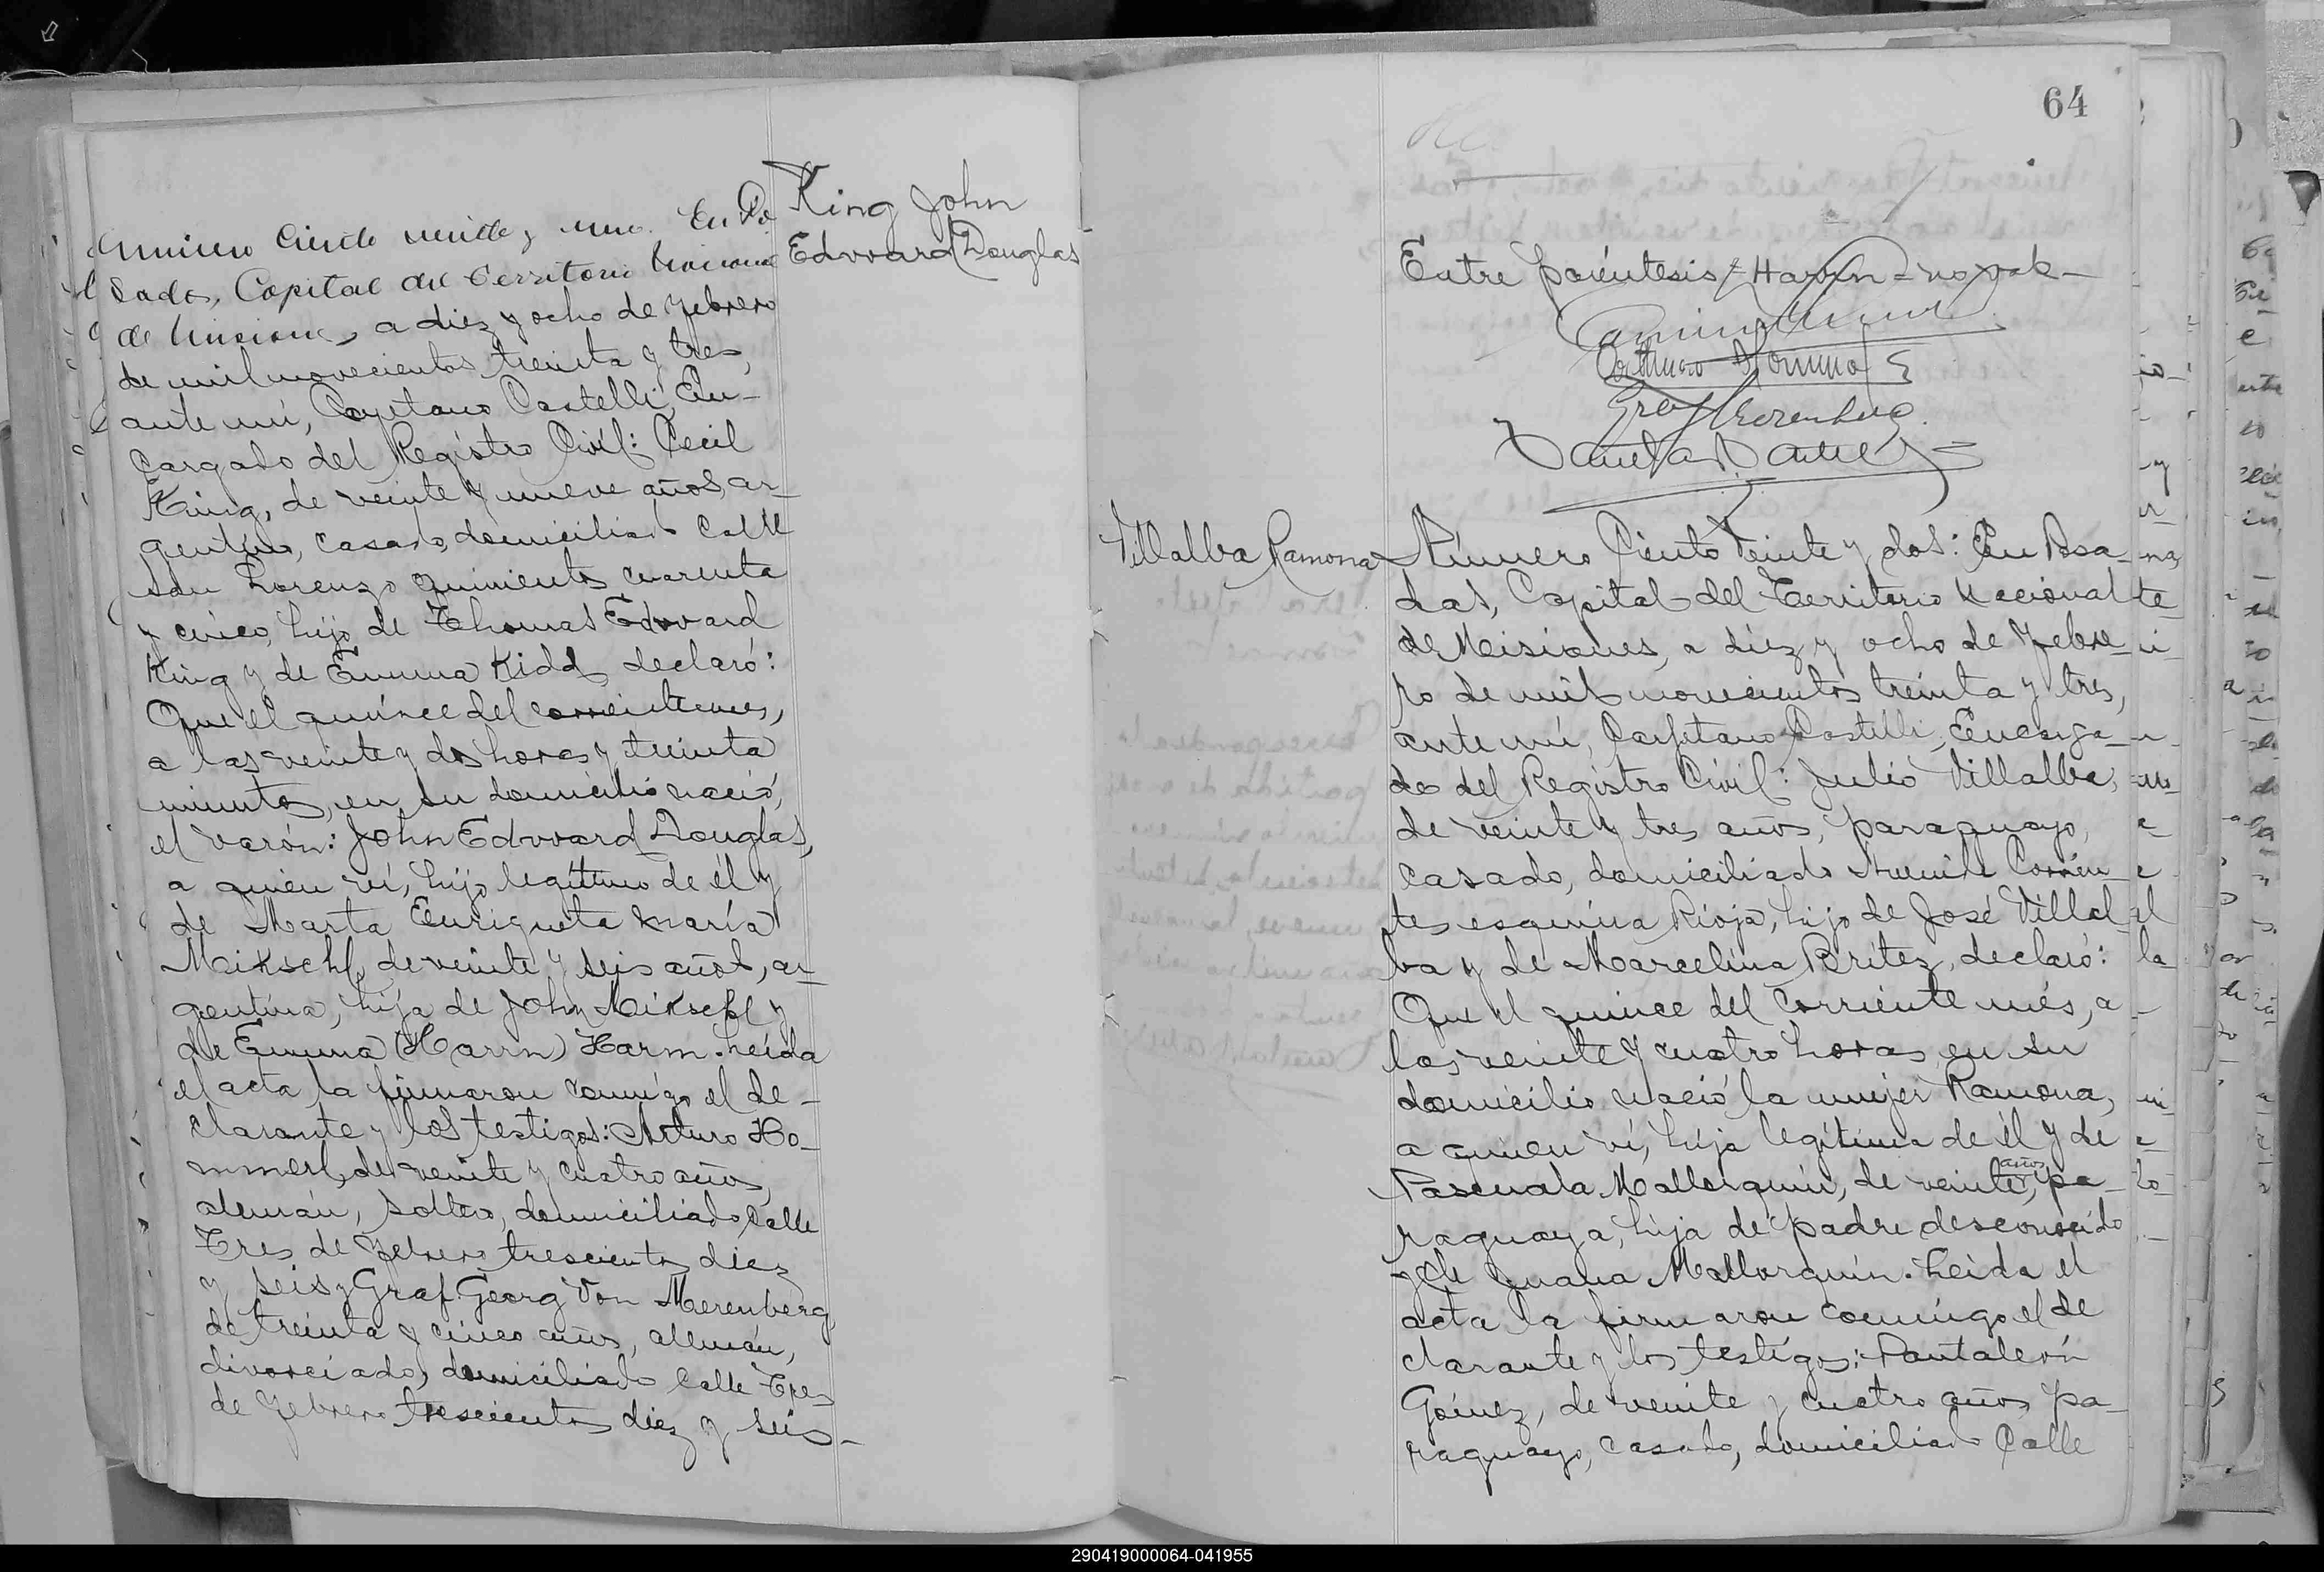 King John
Edward Douglas
Número Ciento veinte y uno. En Po
sadas, Capital del Territorio Nacional
de Misiones, a diez y ocho de Febrero
de mil novecientos treinta y tres,
ante mí, Cayetano Castelli, En-
cargado del Registro Civil: Cecil
King, de veinte y nueve años, ar-
gentino, casado, domiciliado calle
San Lorenzo quinientos cuarenta
y cinco, hijo de Thomas Edward
King y de Emma Kidd, declaró:
Que el quince del corriente mes,
a las veinte y dos horas y treinta
minutos, en su domicilio nació,
el varón: John Edward Douglas,
a quien ví, hijo legítimo de él y
de Marta Enriqueta María
Mikschl, de veinte y seis años, ar-
gentina, hija de John Mikschl y
de Emma (Harrn) Harm. Leída
el acta la firmaron conmigo el de-
clarante y los testigos: Arturo Ho-
mmerl, de veinte y cuatro años,
alemán, soltero, domiciliado calle
Tres de Febrero trescientos diez
y seis y Graf Georg Von Merenberg
de treinta y cinco años, alemán,
divorciado, domiciliado calle Tres
de Febrero trescientos diez y seis-
64
Entre paréntesis/Harrn=no vale-
Villalba Ramona
Número Ciento Veinte y dos: En Posa-
das, Capital del Territorio Nacional
de Misiones, a diez y ocho de Febre-
ro de mil novecientos treinta y tres,
ante mí, Cayetano Castelli, Encarga-
do del Registro Civil: Julio Villalba,
de veinte y tres años, paraguayo,
casado, domiciliado Avenida Corrien-
tes esquina Rioja, hijo de José Villal-
ba y de Marcelina Brítez, declaró:
Que el quince del corriente mes, a
las veinte y cuatro horas, en su
domicilio nació la mujer Ramona,
a quien ví, hija legítima de él y de
Pascuala Mallorquín, de veinte años, pa-
raguaya, hija de padre desconocido
y de Juana Mallorquín. Leída el
acta la firmaron conmigo el de
clarante y los testigos: Pantaleón
Gómez, de veinte y cuatro años, pa-
raguayo, casado, domiciliado Calle
290419000064-041955